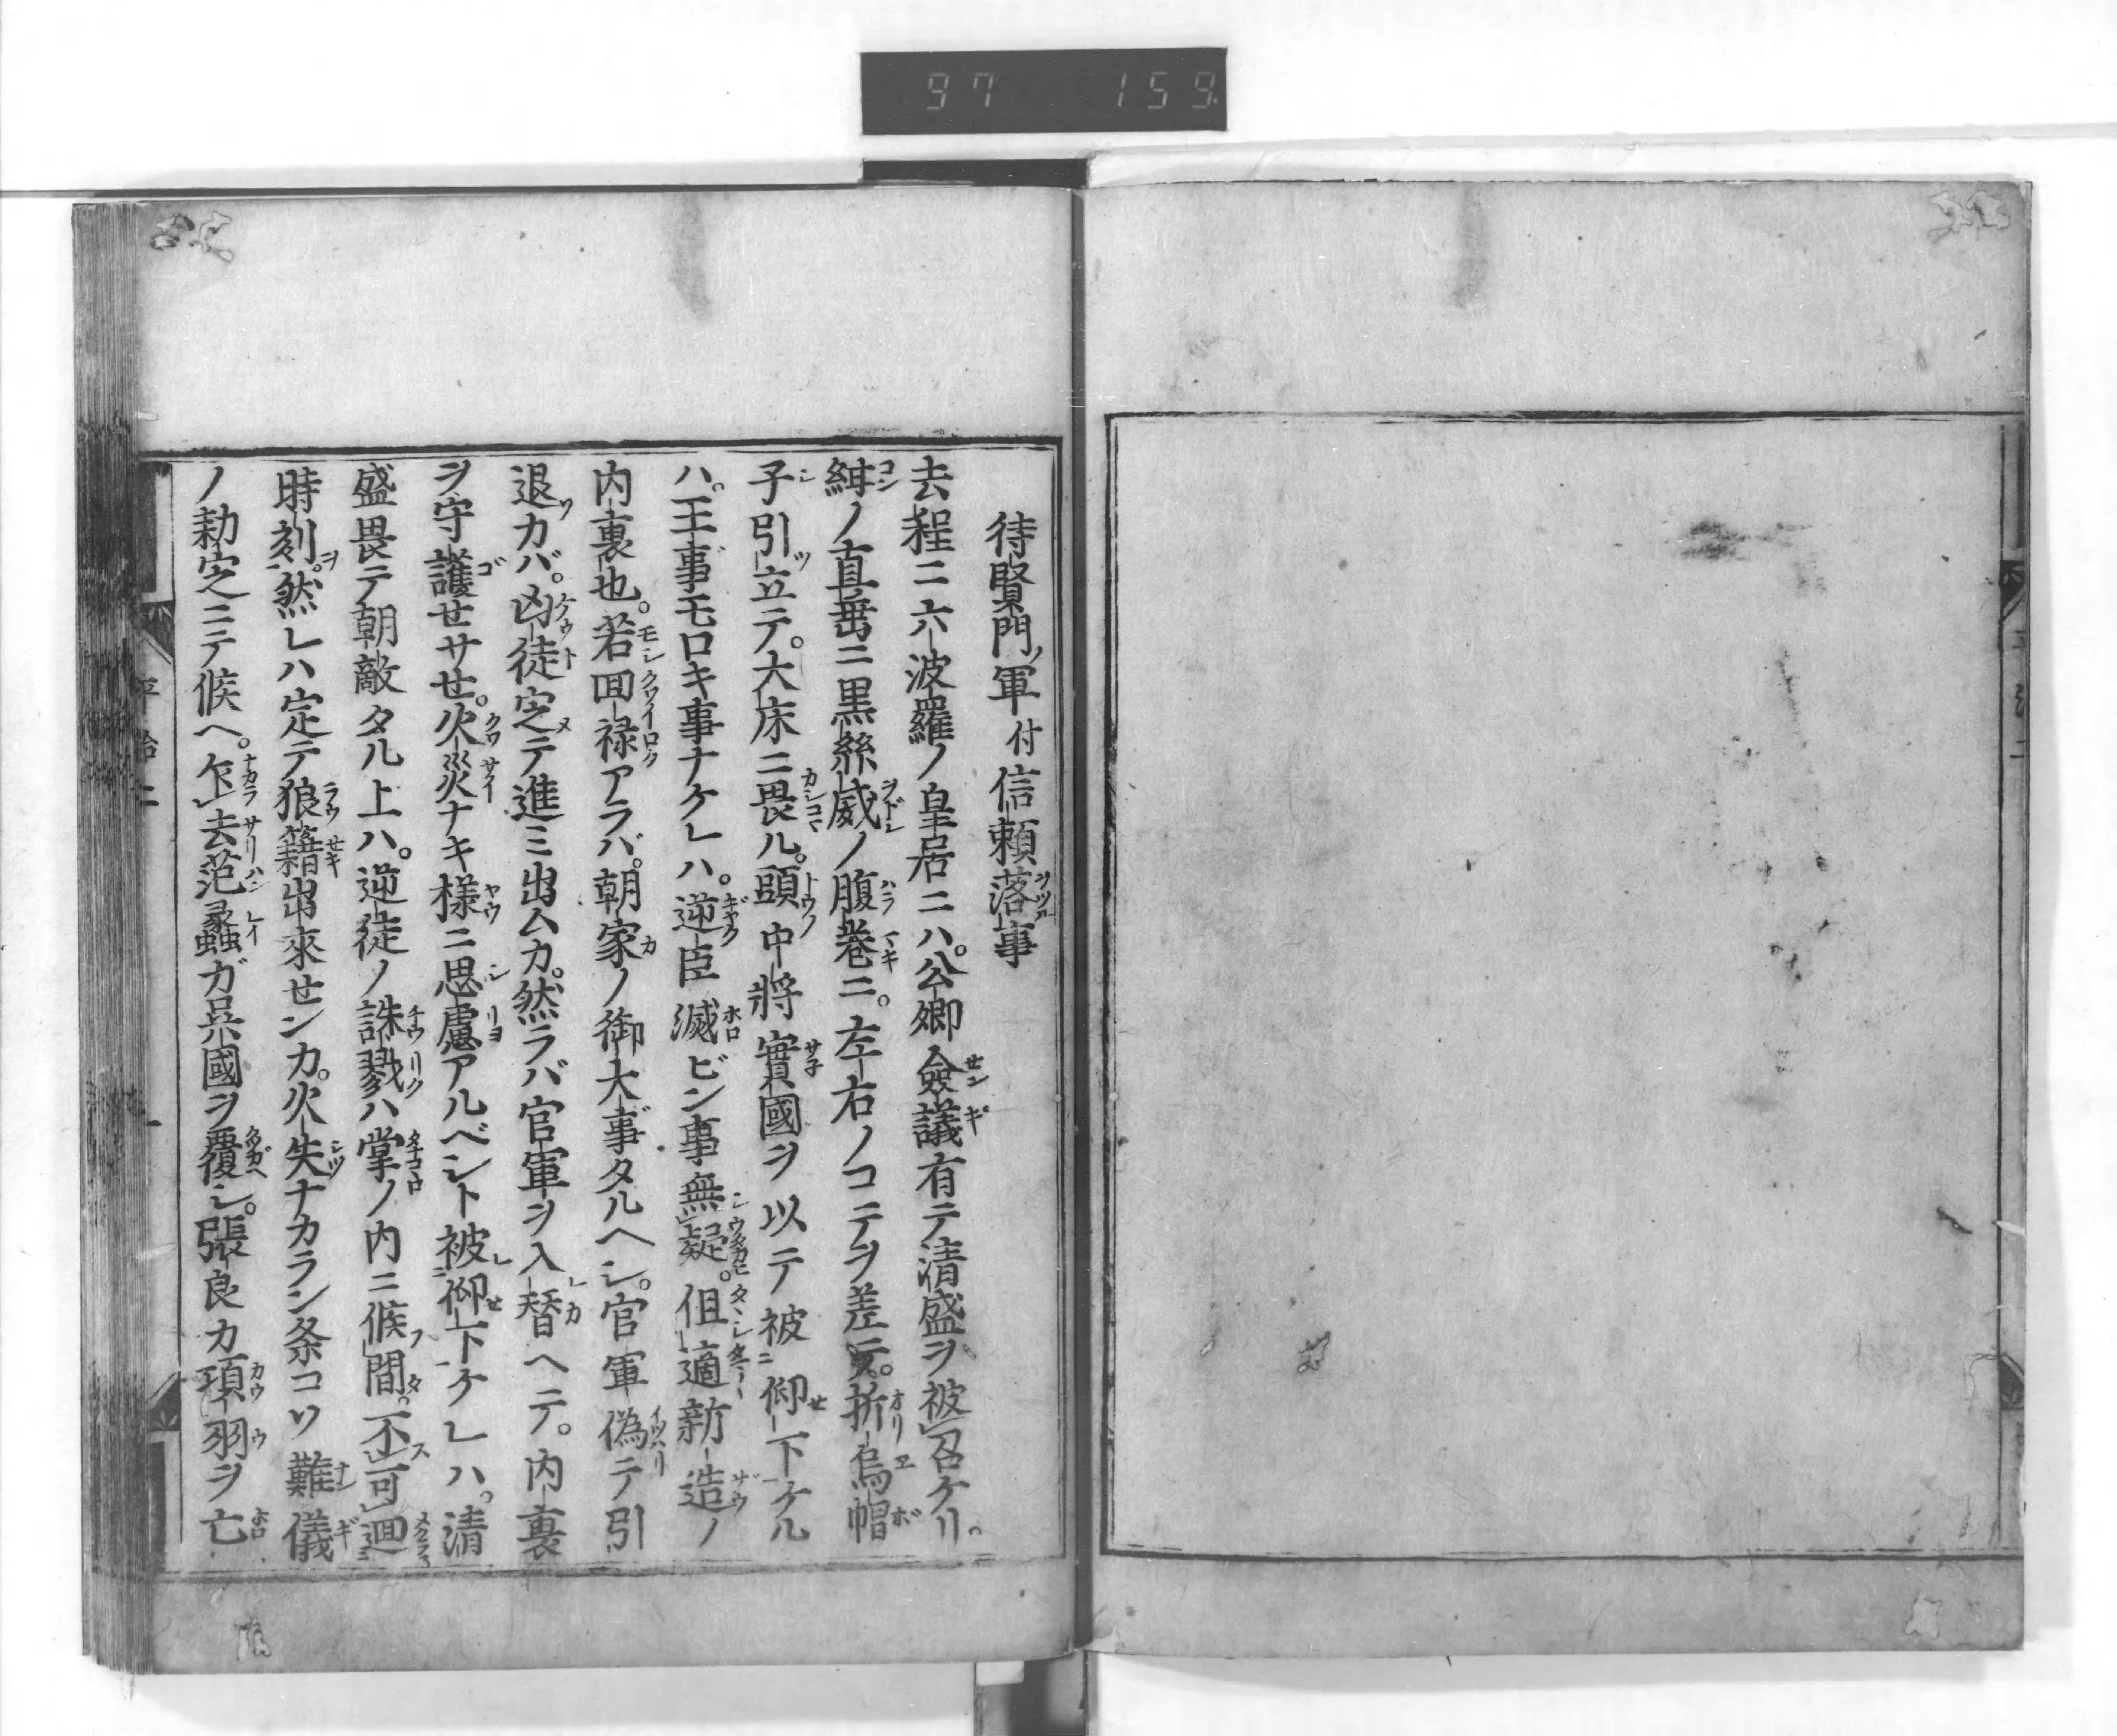 97 159
待賢門ノ軍付信頼落事
去程ニ六波羅ノ皇居ニハ。公卿僉議有テ清盛ヲ被召ケリ。
紺ノ直垂ニ黒絲威ノ腹巻ニ。左右ノコテヲ差テ。折烏帽
子引立テ。大床ニ畏ル。頭中將實國ヲ以テ被仰下ケル
ハ。王事モロキ事ナケレハ。逆臣滅ビン事無疑。但適新造ノ
内裏也。若回禄アラバ。朝家ノ御大事タルヘシ。官軍偽テ引
退カバ。凶徒定テ進ミ出ムカ。然ラバ官軍ヲ入替ヘテ。内裏
ヲ守護せサせ。火災ナキ様ニ思慮アルベシト被仰下ケレハ。清
盛畏テ朝敵タル上ハ。逆徒ノ誅戮ハ掌ノ内ニ候間。不可廻
時刻。然レハ定テ狼籍出來せンカ。火失ナカラン条コソ難儀
ノ勅定ニテ候ヘ。乍去范蠡ガ呉國ヲ覆シ。張良カ項羽ヲ亡